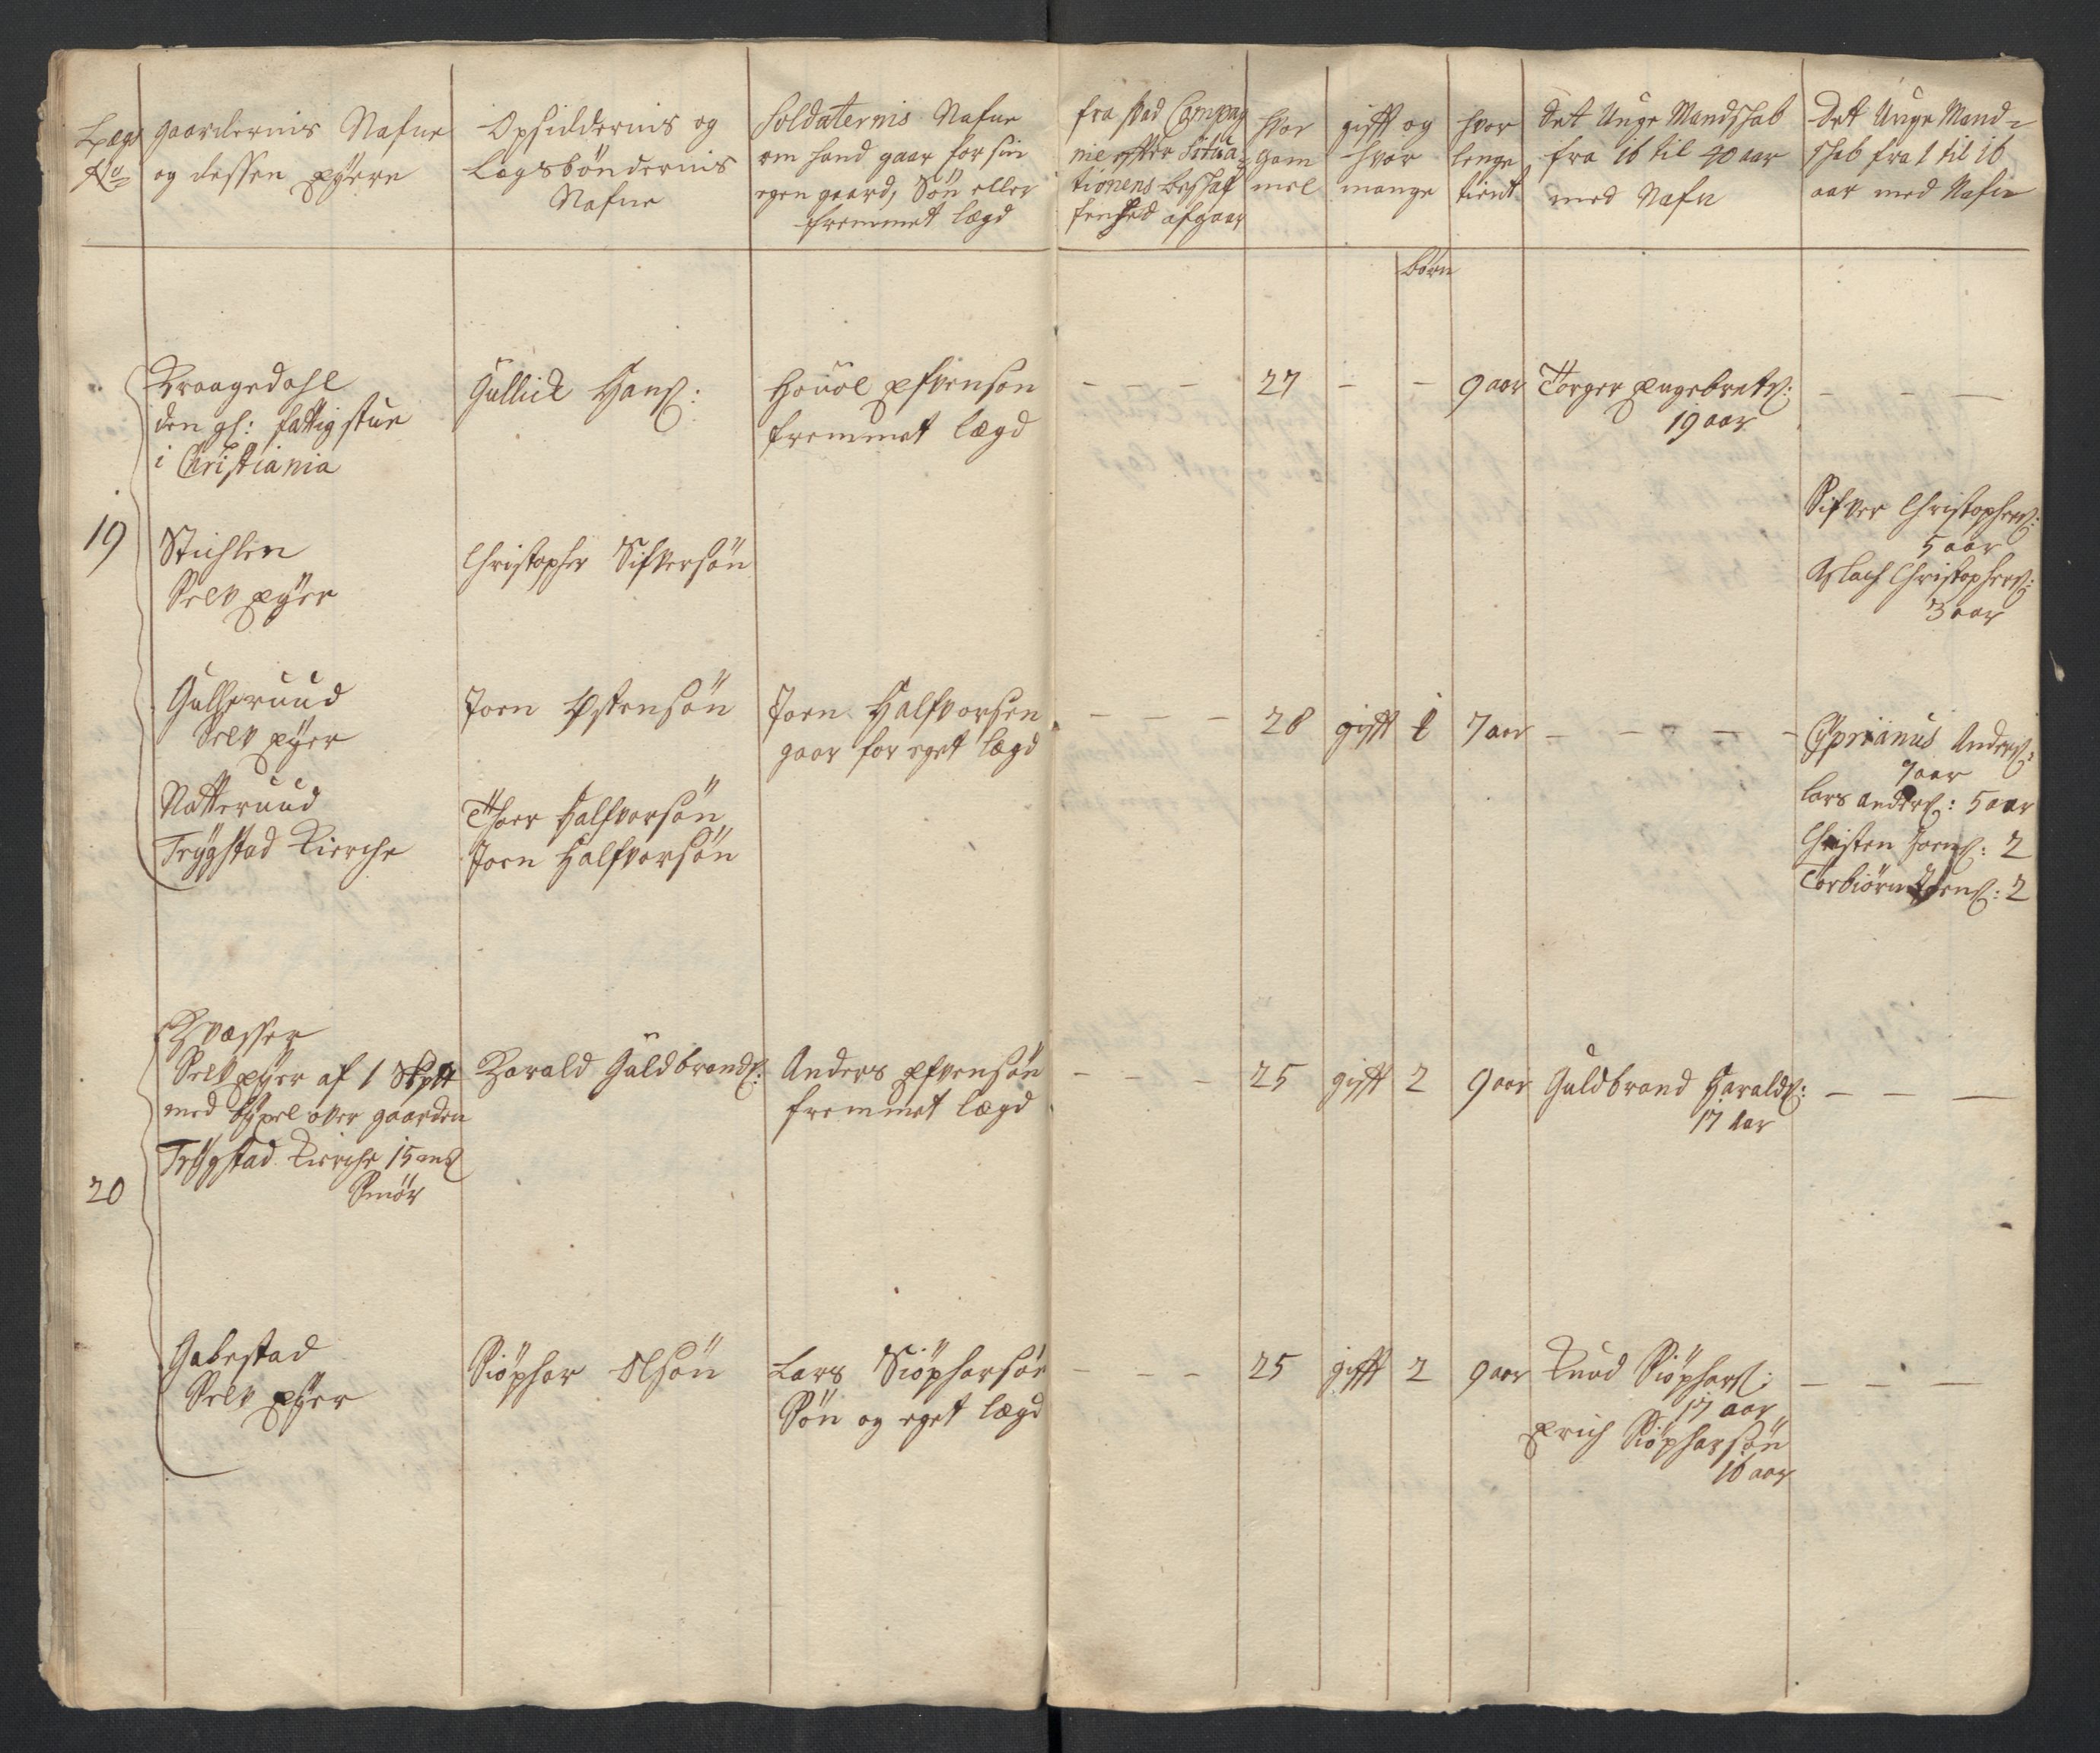 Lægs
No
gaardernis Nafne
og dessen eyere
Opsiddernis og
Lægsbøndernis
Nafne
Soldaternis Nafne
om hand gaar for sin
egen gaard, Søn eller
fremmet lægd
fra hvad Compag
nie efter Situa-
tionens beskaf
fenhed afgaar
hvor
gam
mel
gifft og
hvor
mange
hvor
lenge
tient
Det Unge Mandskab
fra 16 til 40 aar
med Nafn
Det Unge Mand-
skab fra 1 til 16
aar med Nafn
børn
19
Kraagedahl
den gl: fattigstue
i Christiania
Gullick Hans:
Houol Efvensøn
fremmet lægd
- - - 27 - - 9 aar
Torger Engebrets:
19 aar
- - -
Stichlen
Selv eyer
Christopher Sifversøn
Sifver Christophers:
5 aar
Aslach Christophers:
3 aar
Gullseruud
Selv eyer
Joen Østensøn
Joen Halfvorsen
gaar for eget lægd
- - - 28 gifft 1 7 aar - - - -
Cyprianus Anders:
7 aar
Lars Anders: 5 aar
Christen Joens: 2
Torbiørn Joens: 2
Natteruud
Trygstad Kierche
Thoer Halfvorsøn
Joen Halfvorsøn
20
Kvæsser
Selv eyer af 1 Skp
med bøxel over gaarden
Trygstad Kierche 15 mk
Smør
Harald Guldbrands:
Anders Efvensøn
fremmet lægd
- - - 25 gifft 2 9 aar
Guldbrand Haralds:
17 aar
- - -
Gabestad
Selv eyer
Siøphar Olsøn
Lars Siøpharsøn
Søn og eget lægd
- - - 25 gifft 2 9 aar
Knud Siøphars:
17 aar
Erich Siøpharsøn
16 aar
- - -